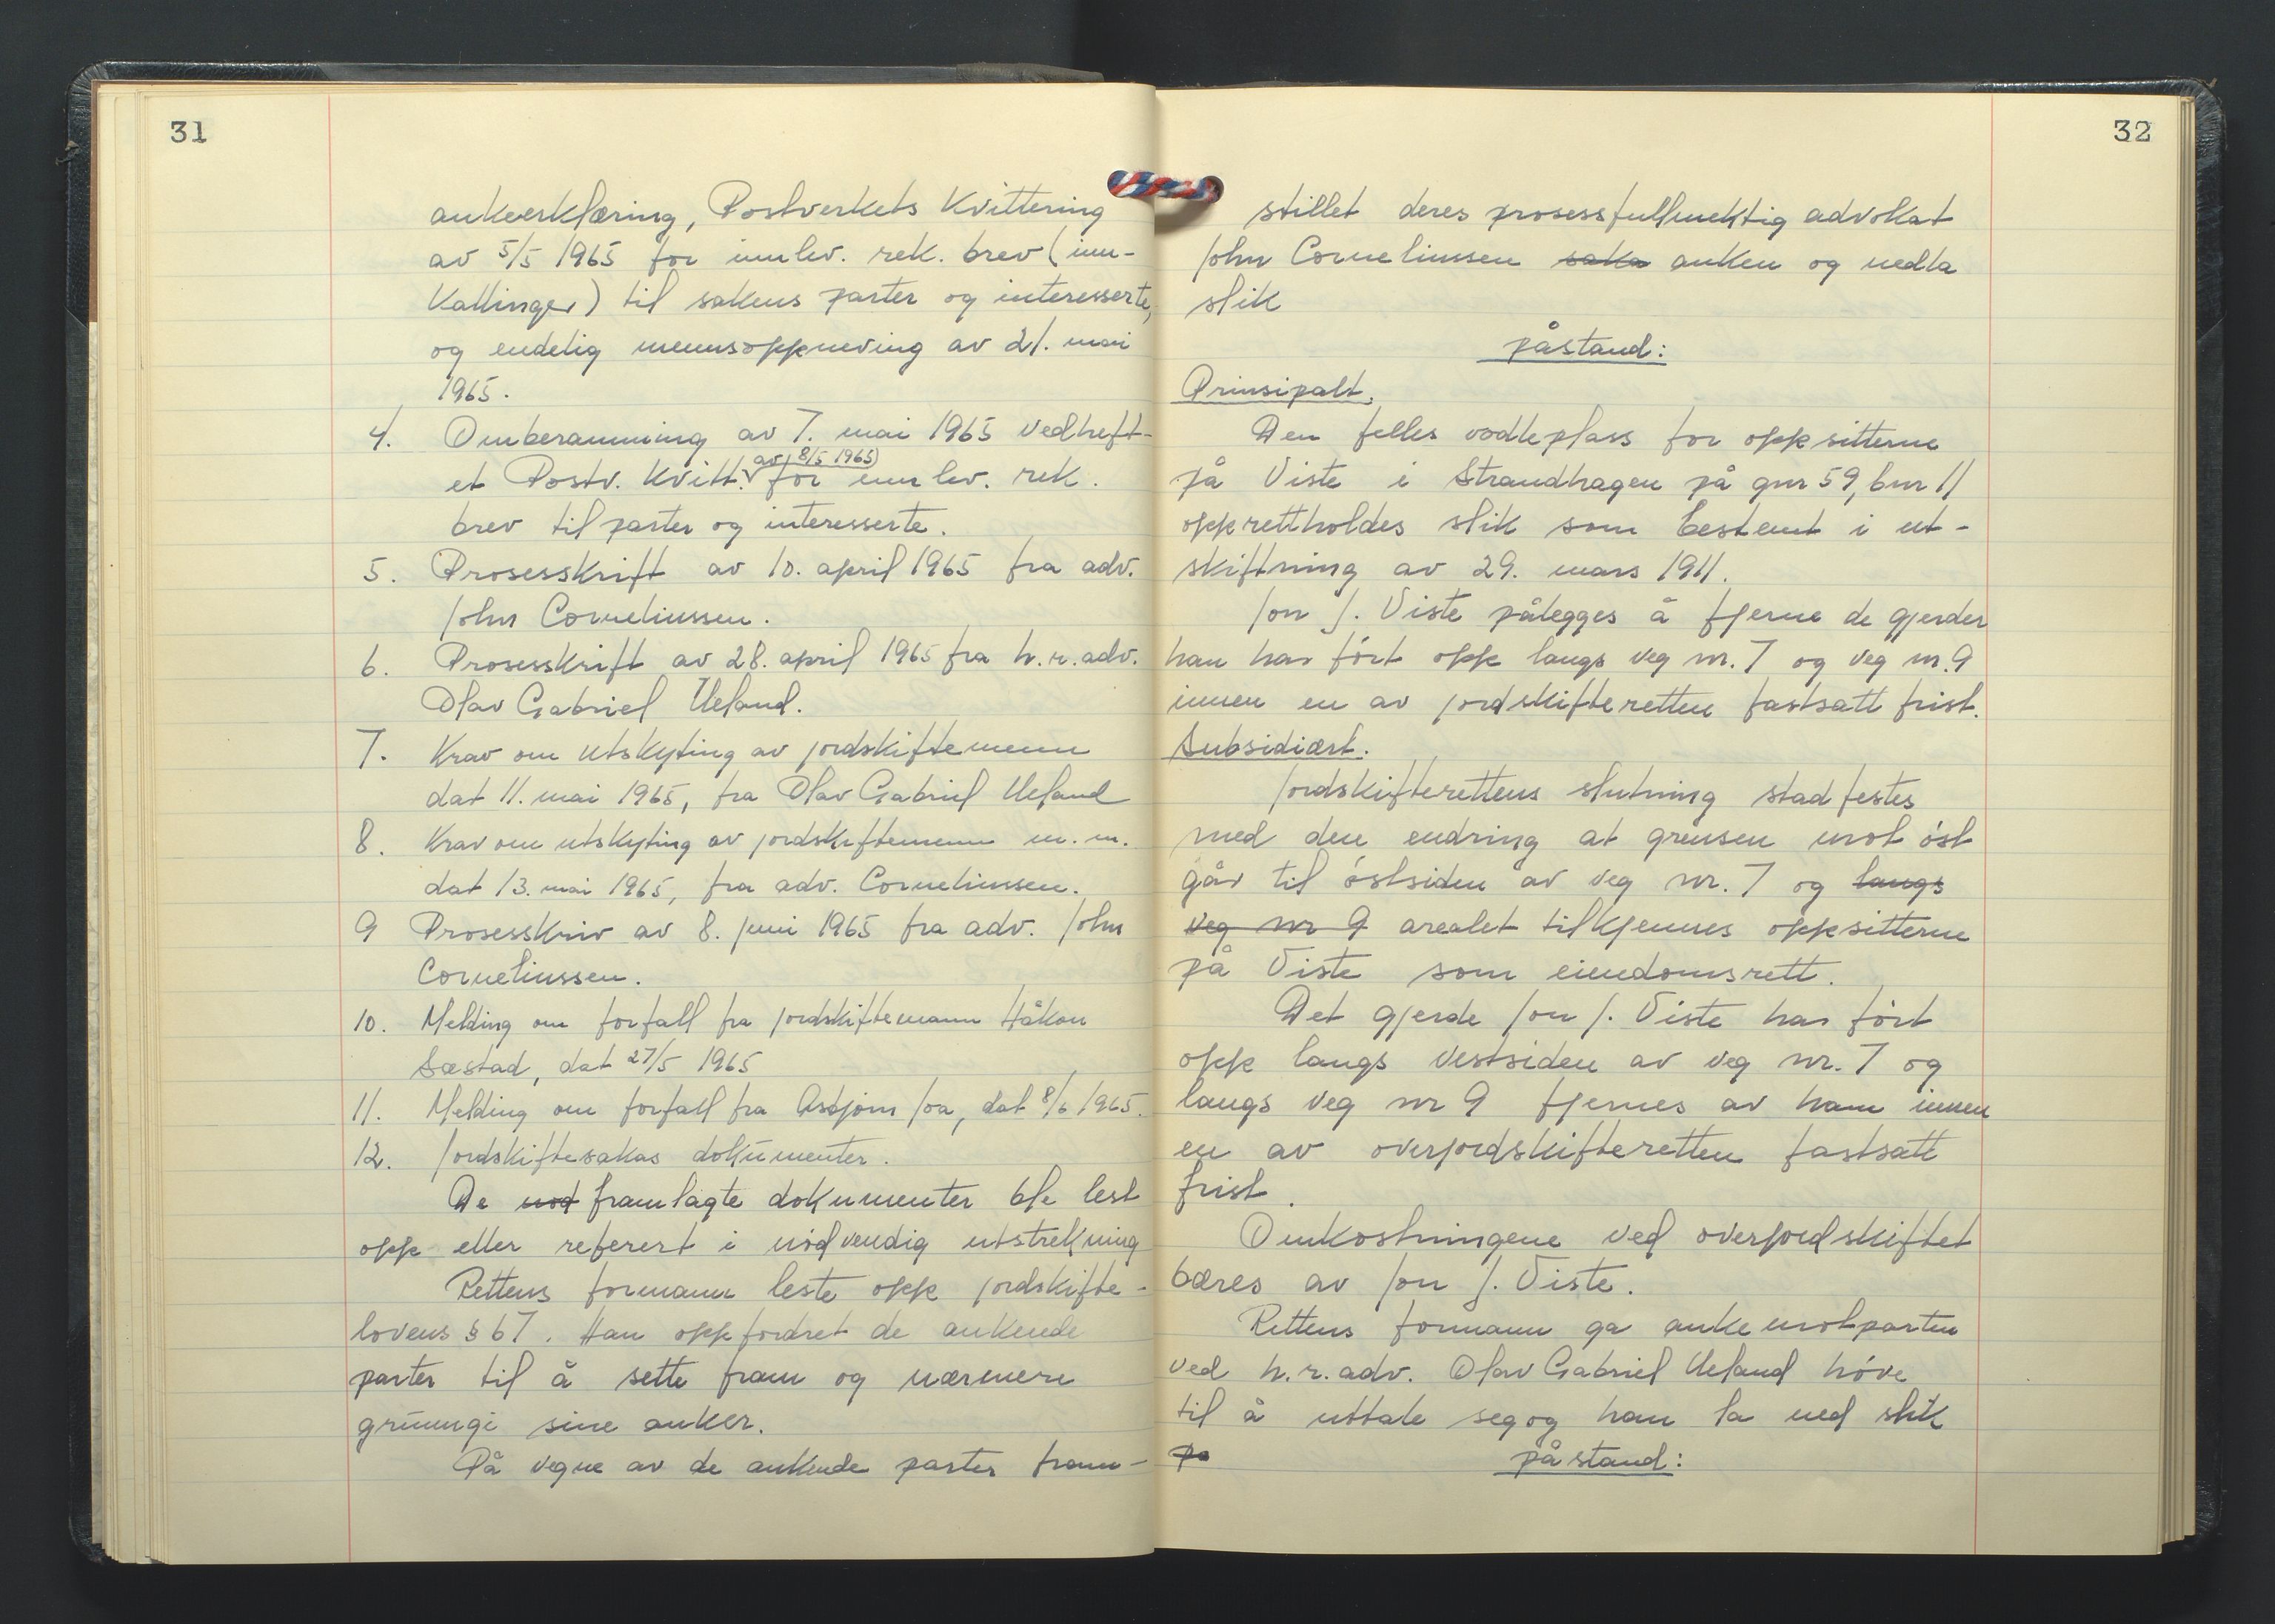 31
ankeerklæring, Postverkets Kvittering
av 5/5 1965 for innlev. rek. brev (inn-
kallinger) til sakens parter og interesserte,
og endelig mennsoppneving av 21. mai
1965.
4. Omberamming av 7. mai 1965 vedheft-
et Postv. kvitt. av 8/5 1965 for innlev. rek.
brev til parter og interesserte.
5. Prosesskrift av 10. april 1965 fra adv.
John Corneliussen.
6. Prosesskrift av 28. april 1965 fra h.r.adv.
Olav Gabriel Ueland.
7. Krav om utskyting av jordskiftemenn
dat 11. mai 1965, fra Olav Gabriel Ueland
8. Krav om utskyting av jordskiftemenn m.m.
dat 13. mai 1965, fra adv. Corneliussen.
9 Prosesskriv av 8. juni 1965 fra adv. John
Corneliussen.
10. Melding om forfall fra jordskiftemann Håkon
Sæstad, dat 27/5 1965
11. Melding om forfall fra Asbjørn Joa, dat 8/6 1965.
12. Jordskiftesakas dokumenter.
De nød framlagte dokumenter ble lest
opp eller referert i nødvendig utstrekning
Rettens formann leste opp jordskifte-
lovens § 67. Han oppfordret de ankende
parter til å sette fram og nærmere
grunngi sine anker.
På vegne av de ankende parter fram-
32
stillet deres prosessfullmektig advokat
John Corneliussen saka anken og nedla
slik
påstand:
Prinsipalt.
Den felles vodleplass for oppsitterne
på Viste i Strandhagen på gnr 59, bnr 11
opprettholdes slik som bestemt i ut-
skiftning av 29. mars 1911.
Jon J. Viste pålegges å fjerne de gjerder
han har ført opp langs veg nr. 7 og veg nr. 9
innen en av jordskifteretten fastsatt frist.
Subsidiært.
Jordskifterettens slutning stadfestes
med den endring at grensen mot øst
går til østsiden av veg nr. 7 og langs
veg nr 9 arealet tilkjennes oppsitterne
på Viste som eiendomsrett.
Det gjerde Jon J. Viste har ført
opp langs vestsiden av veg nr. 7 og
langs veg nr 9 fjernes av ham innen
en av overjordskifteretten fastsatt
frist.
Omkostningene ved overjordskiftet
bæres av Jon J. Viste.
Rettens formann ga ankemotparten
ved h.r.adv. Olav Gabriel Ueland høve
til å uttale seg og han la ned slik
på påstand: